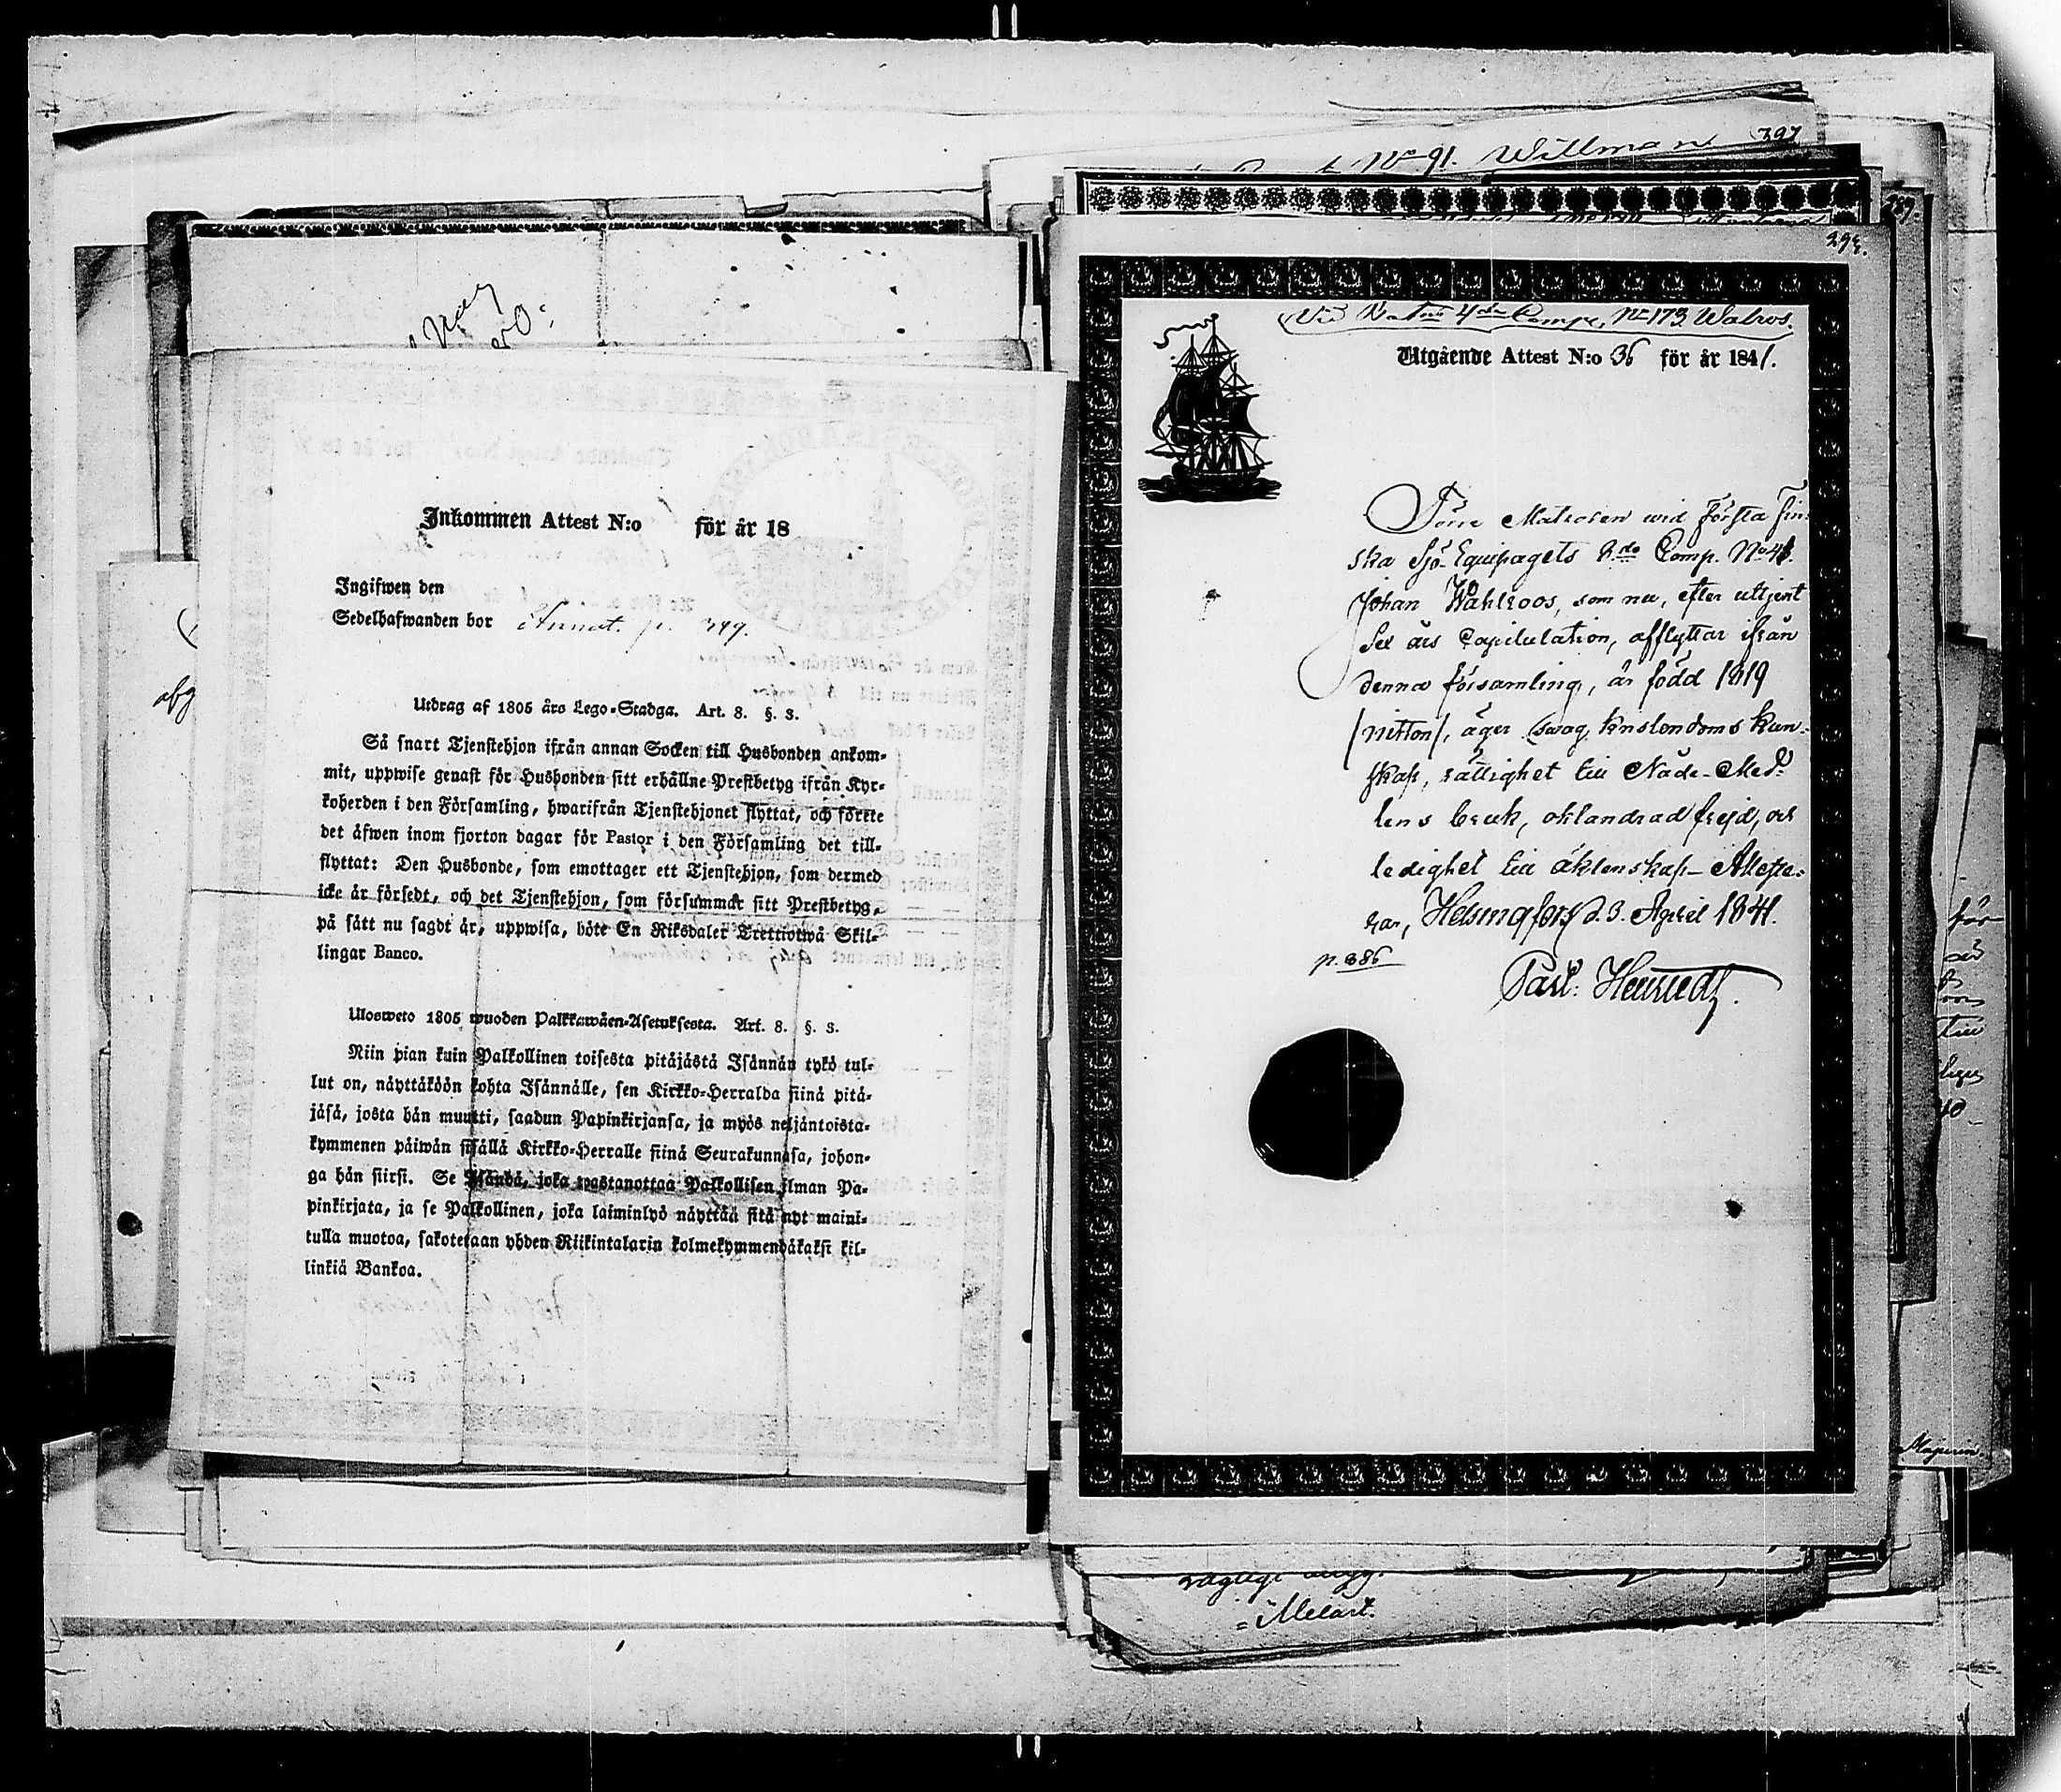 Inkommen Attest N:o för år 18
Ingifwen den
Sedelhafwanden bor Annat. p. 349.
Utdrag af 1805 års Lego-Stadga. Art. 8. §. 3.
Så snart Tjenstehjon ifrån annan Socken till Husbonden ankom-
mit, uppwise genast för Husbonden sitt erhållne Prestbetyg ifrån Kyr-
koherden i den Församling, hwarifrån Tjenstehjonet flyttat, och förete
det äfwen inom fjorton dagar för Pastor i den Församling det till-
flyttat: Den Husbonde, som emottager ett Tjenstehjon, som dermed
icke är försedt, och det Tjenstehjon, som försummar sitt Prestbetyg,
på sätt nu sagdt är, uppwisa, böte En Riksdaler Trettiotwå Skil-
lingar Banco.
Ulosweto 1805 wuoden Palkkawäen-Asetuksesta. Art. 8. §. 3.
Niin pian kuin Palkollinen toisesta pitäjästä Isännän tykö tul-
lut on, näyttäköön kohta Isännälle, sen Kirkko-Herralda siinä pitä-
jäsä, josta hän muutti, saadun Papinkirjansa, ja myös neljäntoista-
kymmenen päiwän sisällä Kirkko-Herralle siinä Seurakunnasa, johon-
ga hän siirsi. Se Isändä, joka wastanottaa Palkollisen ilman Pa-
pinkirjata, ja se Palkollinen, joka laiminlyö näyttää sitä nyt maini-
tulla muotoa, sakotetaan yhden Riikintalarin kolmekymmendäkaksi kil-
linkiä Bankoa.
No 91. Willman 397
289.
4de Comp. No 173 Walros.
Utgående Attest N:o 36 för år 1841.
Förre Matrosen wid Första Fin-
ska Sjö-Equipagets 2:do Comp. No 41.
Johan Wahlroos, som nu, efter uttjent
Sex års Capitulation, afflyttar ifrån
denna församling, är född 1819
/nitton/, äger swag kristendoms kun-
skap, rättighet till Nåde-Med-
lens bruk, oklandrad frejd, och
ledighet till äktenskap- Atteste-
rar, Helsingfors d. 3. April 1841.
p. 386
Past:
Melart.